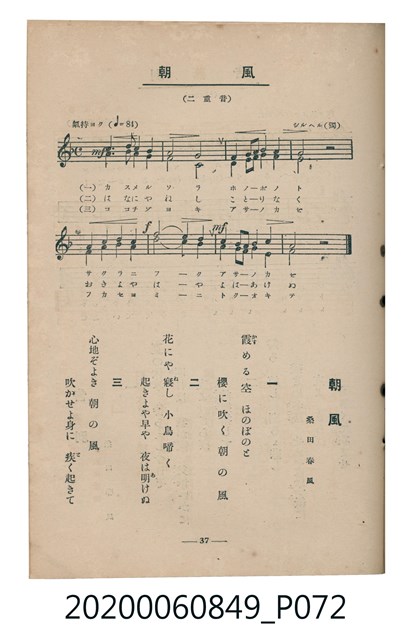 朝風
(二重音)
氣持ヨク (♩=84)
シルヘル(獨)
mf
(一) カスメルソラ ホノーボノト
(二) はなにやねし ことーりなく
(三) ココチゾヨキ アサーノカゼ
f mf
サクラニフーク アサーノカゼ
おきよやはーや よはーあけぬ
フカセヨミーニ トクーオキテ
朝風
桑田春風
一
霞める空 ほのぼのと
櫻に吹く 朝の風
二
花にや寢し 小鳥啼く
起きよや早や 夜は明けぬ
三
心地ぞよき 朝の風
吹かせよ身に 疾く起きて
—37—
20200060849_P072